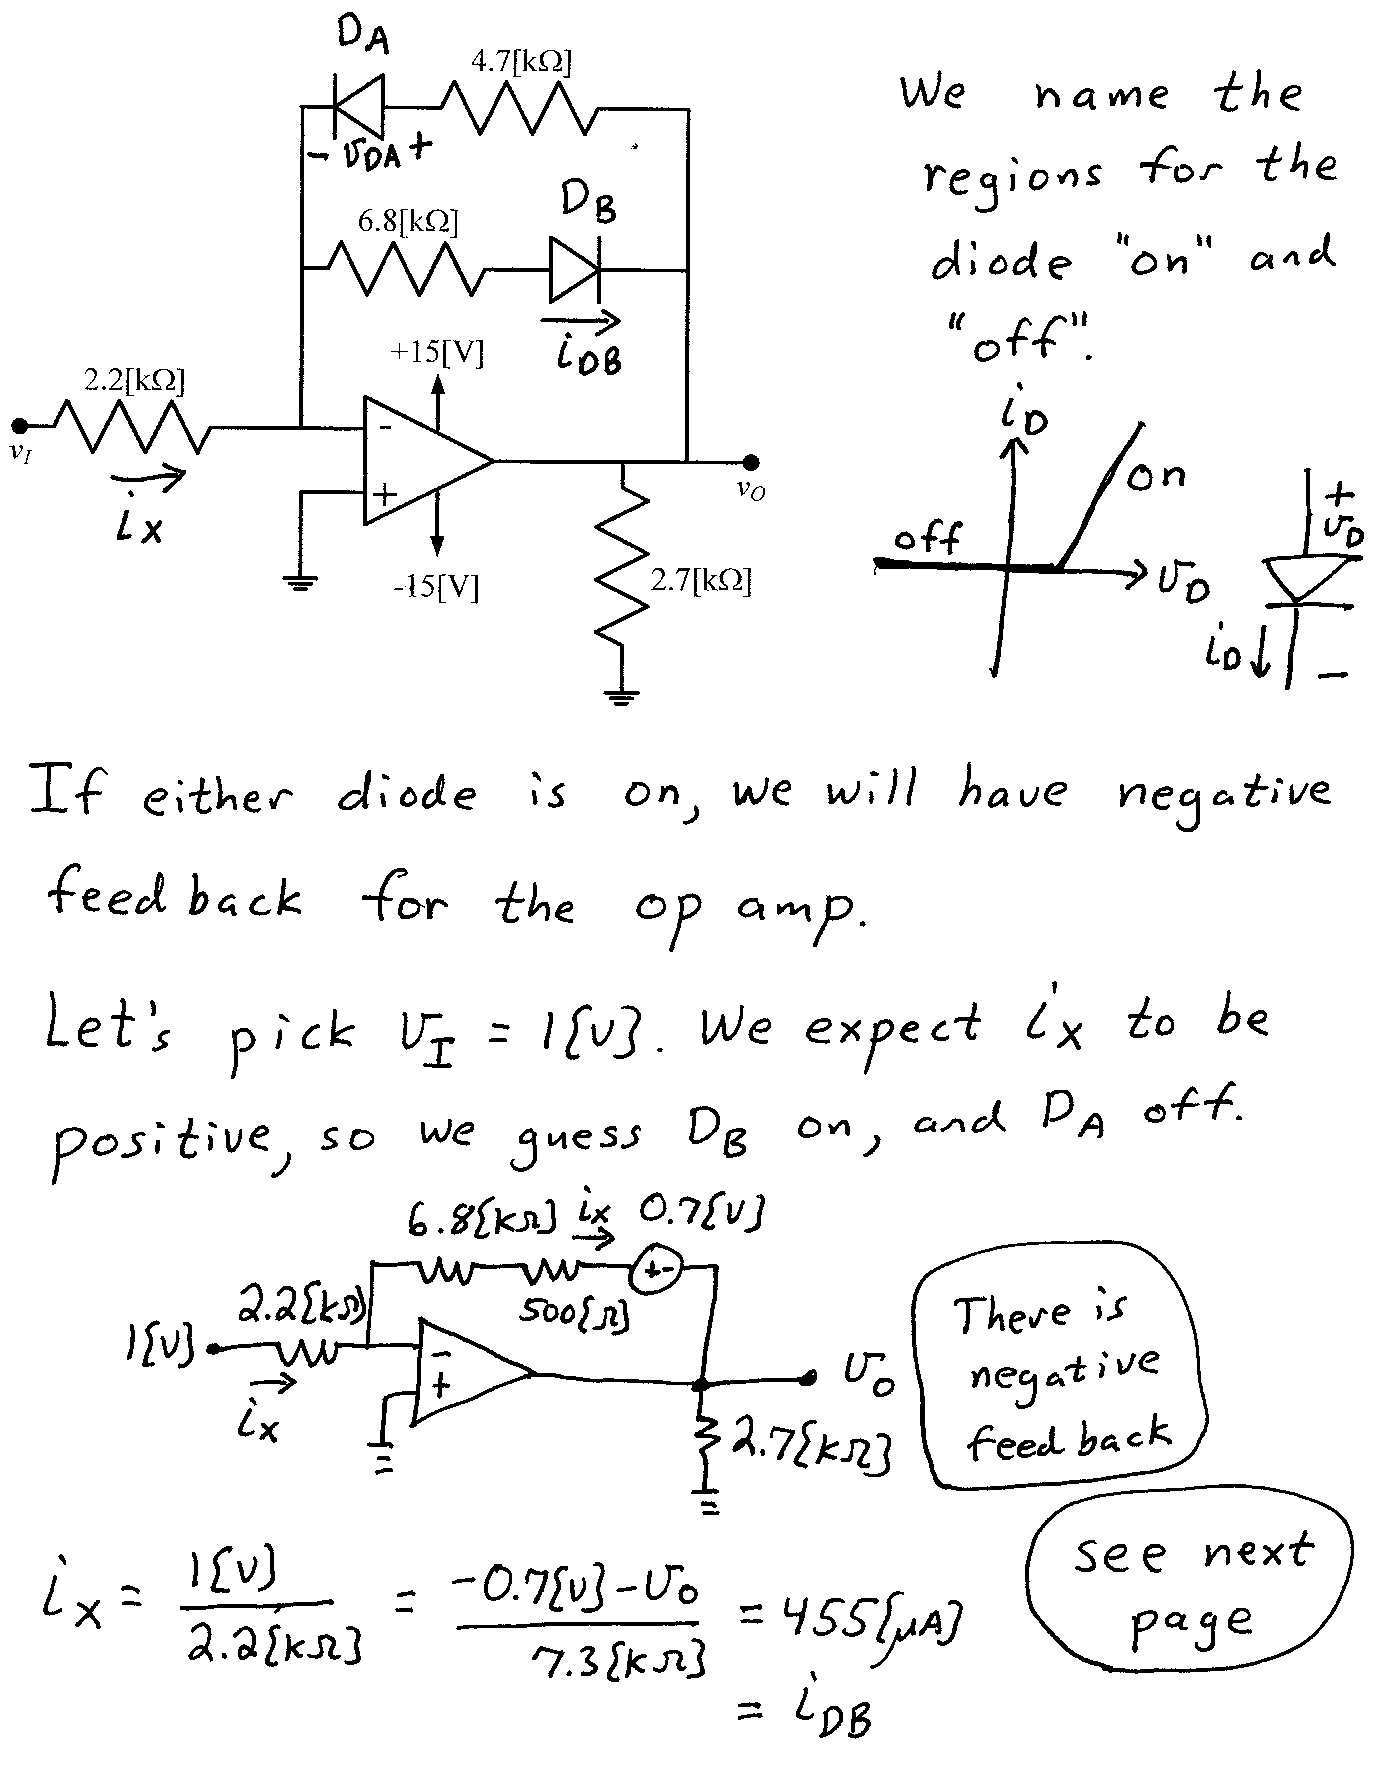 D_A
4.7[kΩ]
- v_DA +
D_B
6.8[kΩ]
i_DB
+15[V]
2.2[kΩ]
v_I
i_X
-
+
v_O
-15[V]
2.7[kΩ]
We name the
regions for the
diode "on" and
"off".
i_D
on
off
v_D
+
v_D
i_D
-
If either diode is on, we will have negative
feedback for the op amp.
Let's pick v_I = 1[V]. We expect i_X to be
positive, so we guess D_B on, and D_A off.
6.8[kΩ] i_X 0.7[V]
+-
2.2[kΩ]
500[Ω]
1[V]
-
+
v_O
i_X
2.7[kΩ]
There is
negative
feedback
see next
page
i_X = 1[V] / 2.2[kΩ] = -0.7[V] - v_O / 7.3[kΩ] = 455[μA]
= i_DB